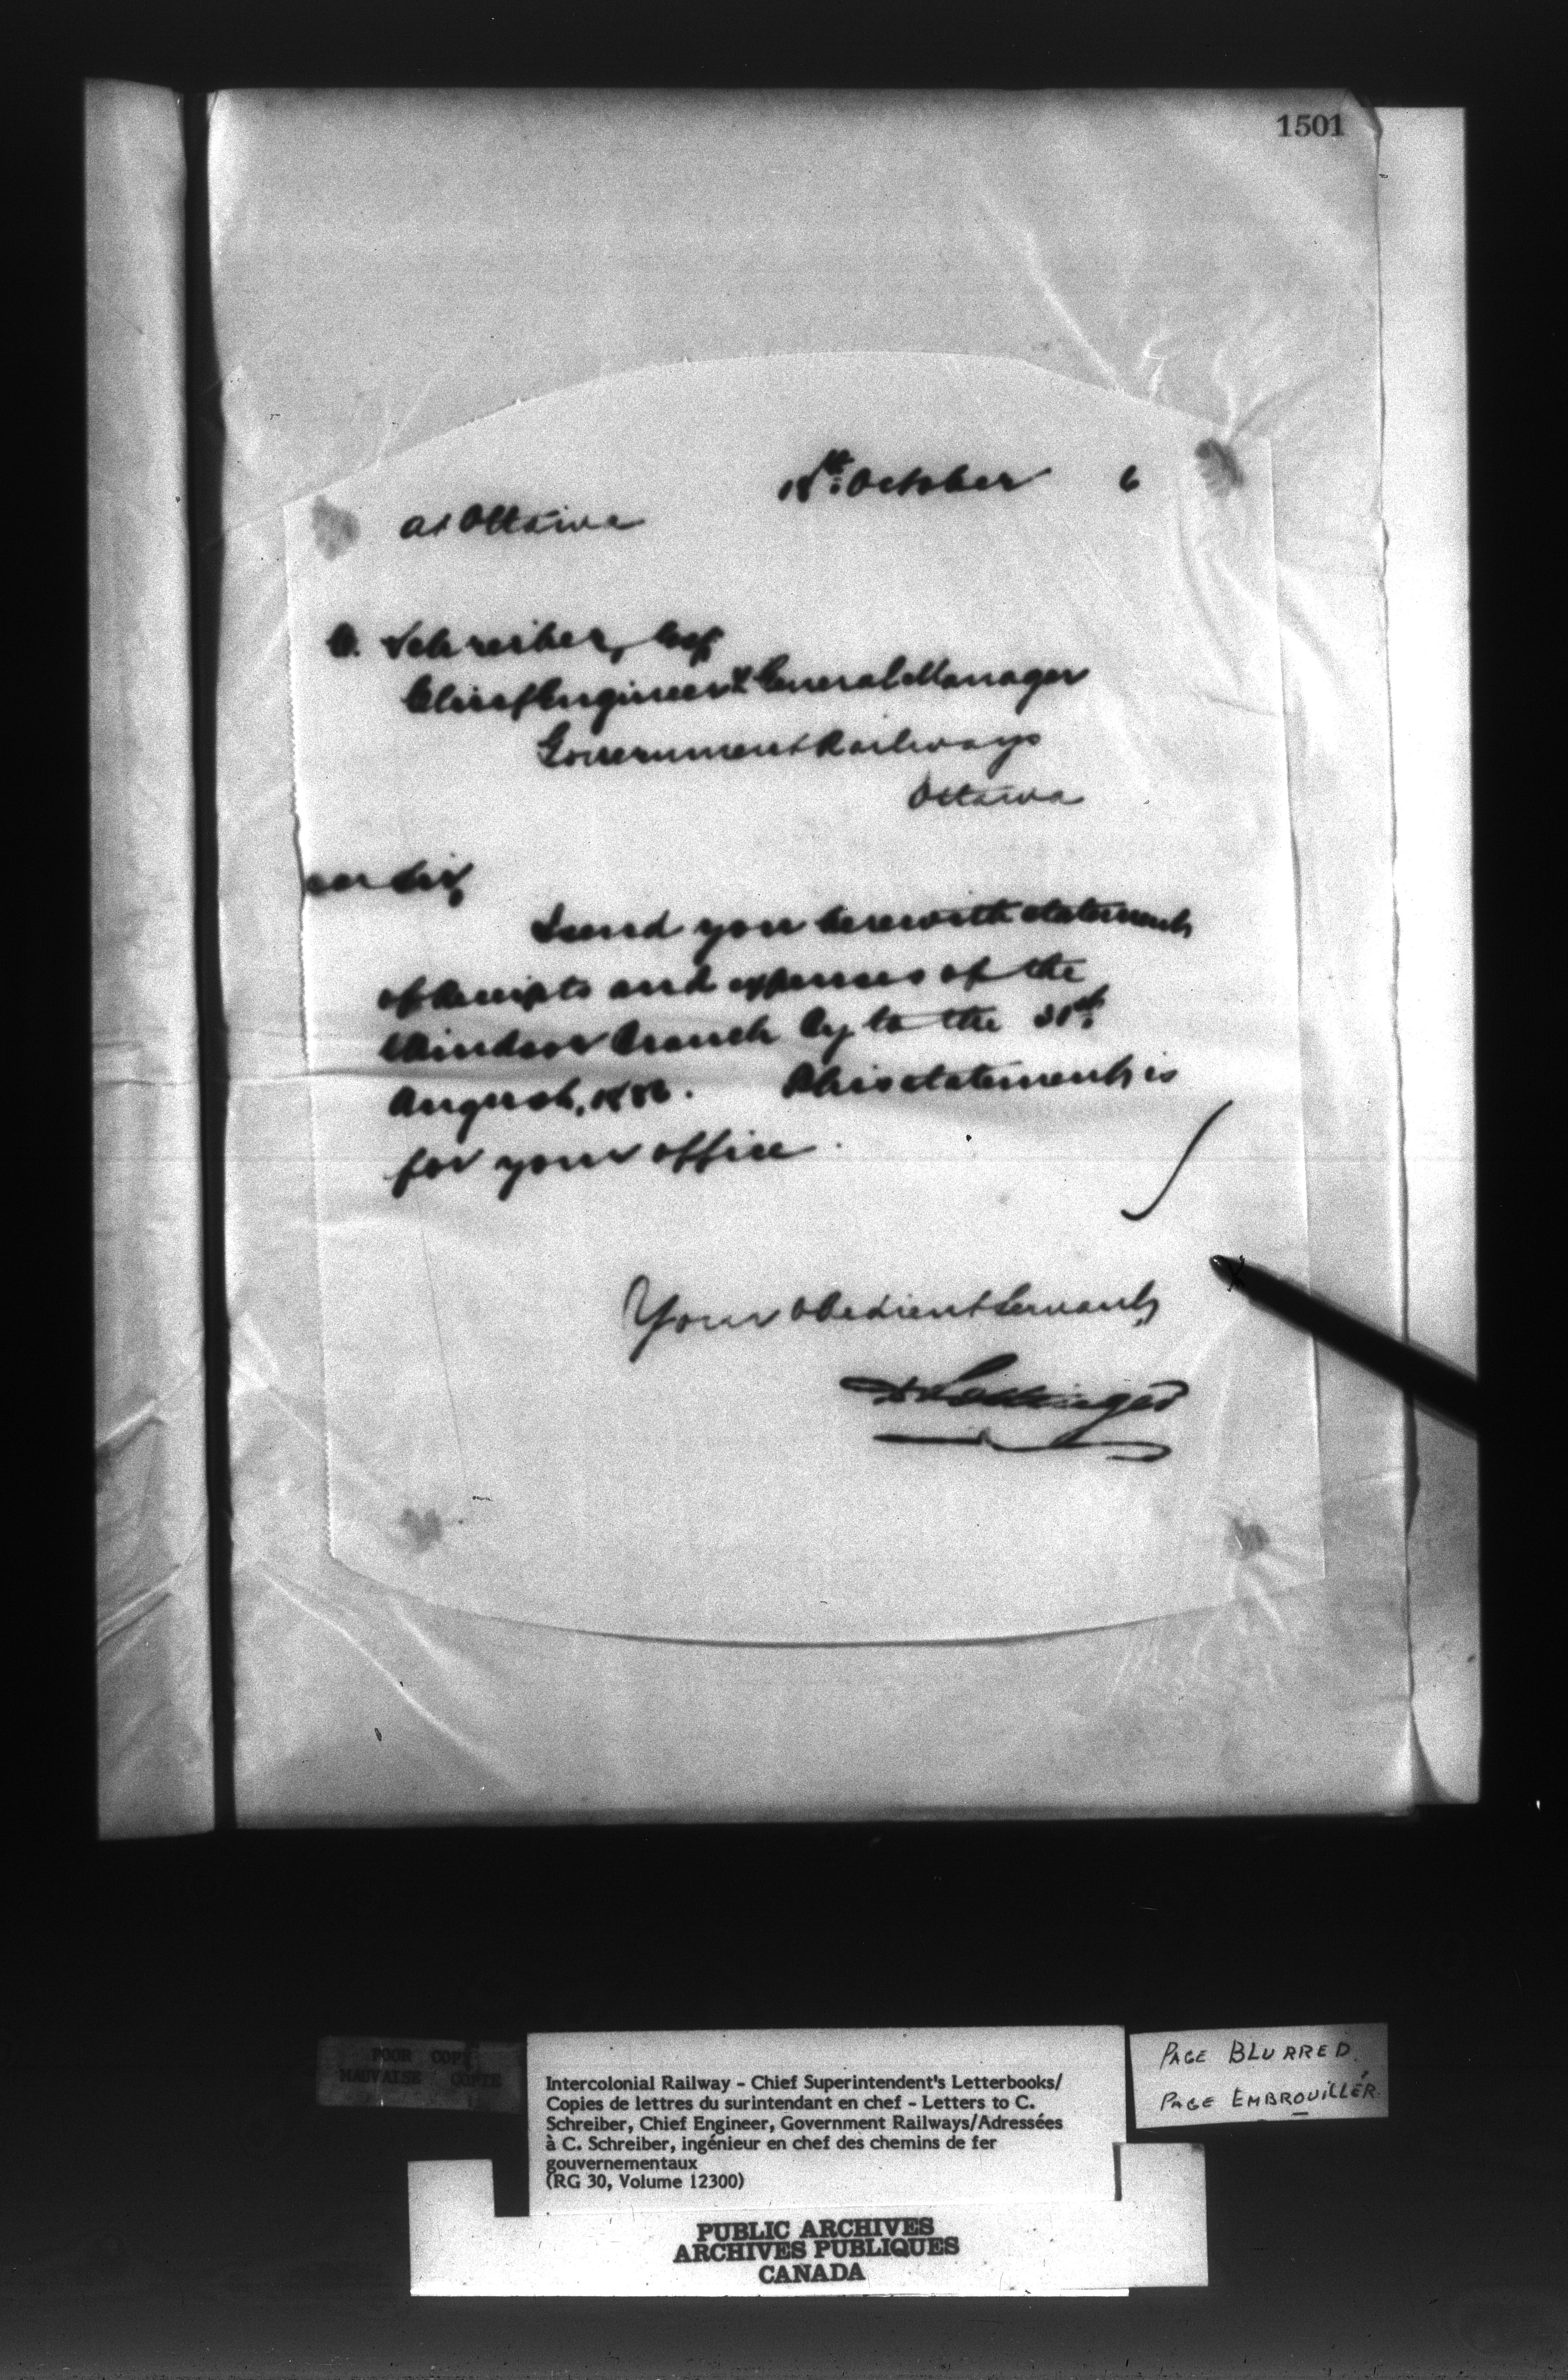 1501
18th October 6
at Ottawa
C. Schreiber, Esq
Chief Engineer & General Manager
Government Railways
Ottawa
ear Sir,
I send you herewith statement
of Receipts and expenses of the
Windsor Branch Ry to the 31st
August, 1886. This statement is
for your office.
Your obedient Servant,
D Pottinger
POOR COPY
MAUVAISE COPIE
Intercolonial Railway - Chief Superintendent's Letterbooks/
Copies de lettres du surintendant en chef - Letters to C.
Schreiber, Chief Engineer, Government Railways/Adressées
à C. Schreiber, ingénieur en chef des chemins de fer
gouvernementaux
(RG 30, Volume 12300)
PAGE BLURRED
PAGE EMBROUILLÉR
PUBLIC ARCHIVES
ARCHIVES PUBLIQUES
CANADA